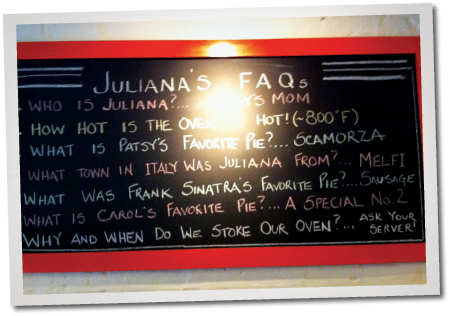 JULIANA'S FAQs
WHO IS JULIANA?... 'S MOM
HOW HOT IS THE OVEN HOT! (~800°F)
WHAT IS PATSY'S FAVORITE PIE?... SCAMORZA
WHAT TOWN IN ITALY WAS JULIANA FROM?... MELFI
WHAT WAS FRANK SINATRA'S FAVORITE PIE?...SAUSAGE
WHAT IS CAROL'S FAVORITE PIE?... A SPECIAL NO. 2
WHY AND WHEN DO WE STOKE OUR OVEN?... ASK YOUR
SERVER!